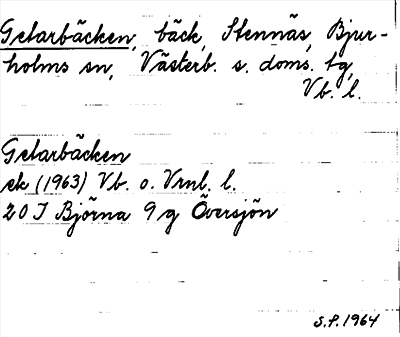 Getarbäcken, bäck, Stennäs, Bjur-
holms sn, Västerb. s. doms. tg,
Vb. l.
Getarbäcken
ek (1963) Vb. o. Vrnl. l.
20 J Björna 9 g Översjön
S.P. 1964